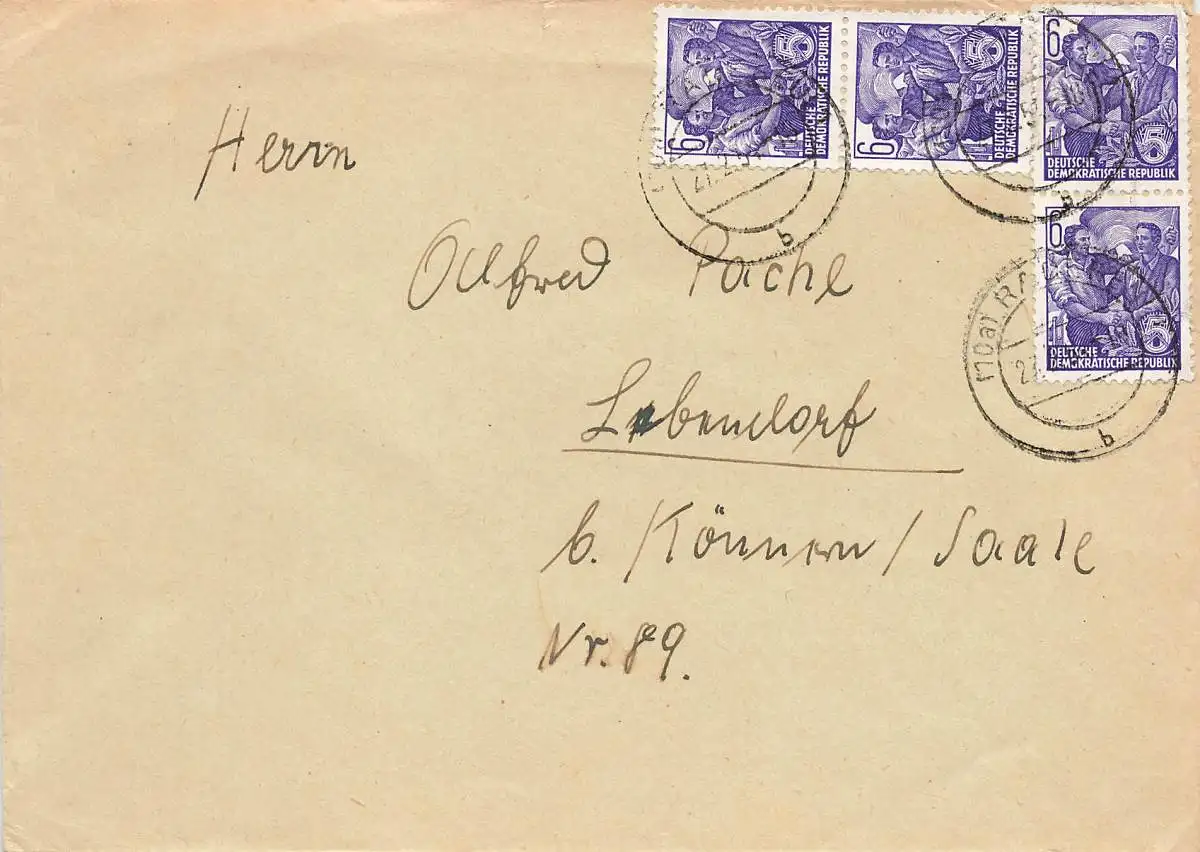 Herrn
Alfred Pache
Lebendorf
b. Könnern / Saale
Nr. 89.
6
DEUTSCHE
DEMOKRATISCHE REPUBLIK
5
6
DEUTSCHE
DEMOKRATISCHE REPUBLIK
5
6
DEUTSCHE
DEMOKRATISCHE REPUBLIK
5
6
DEUTSCHE
DEMOKRATISCHE REPUBLIK
5
27.2.54
b
b
(10a) RA
b